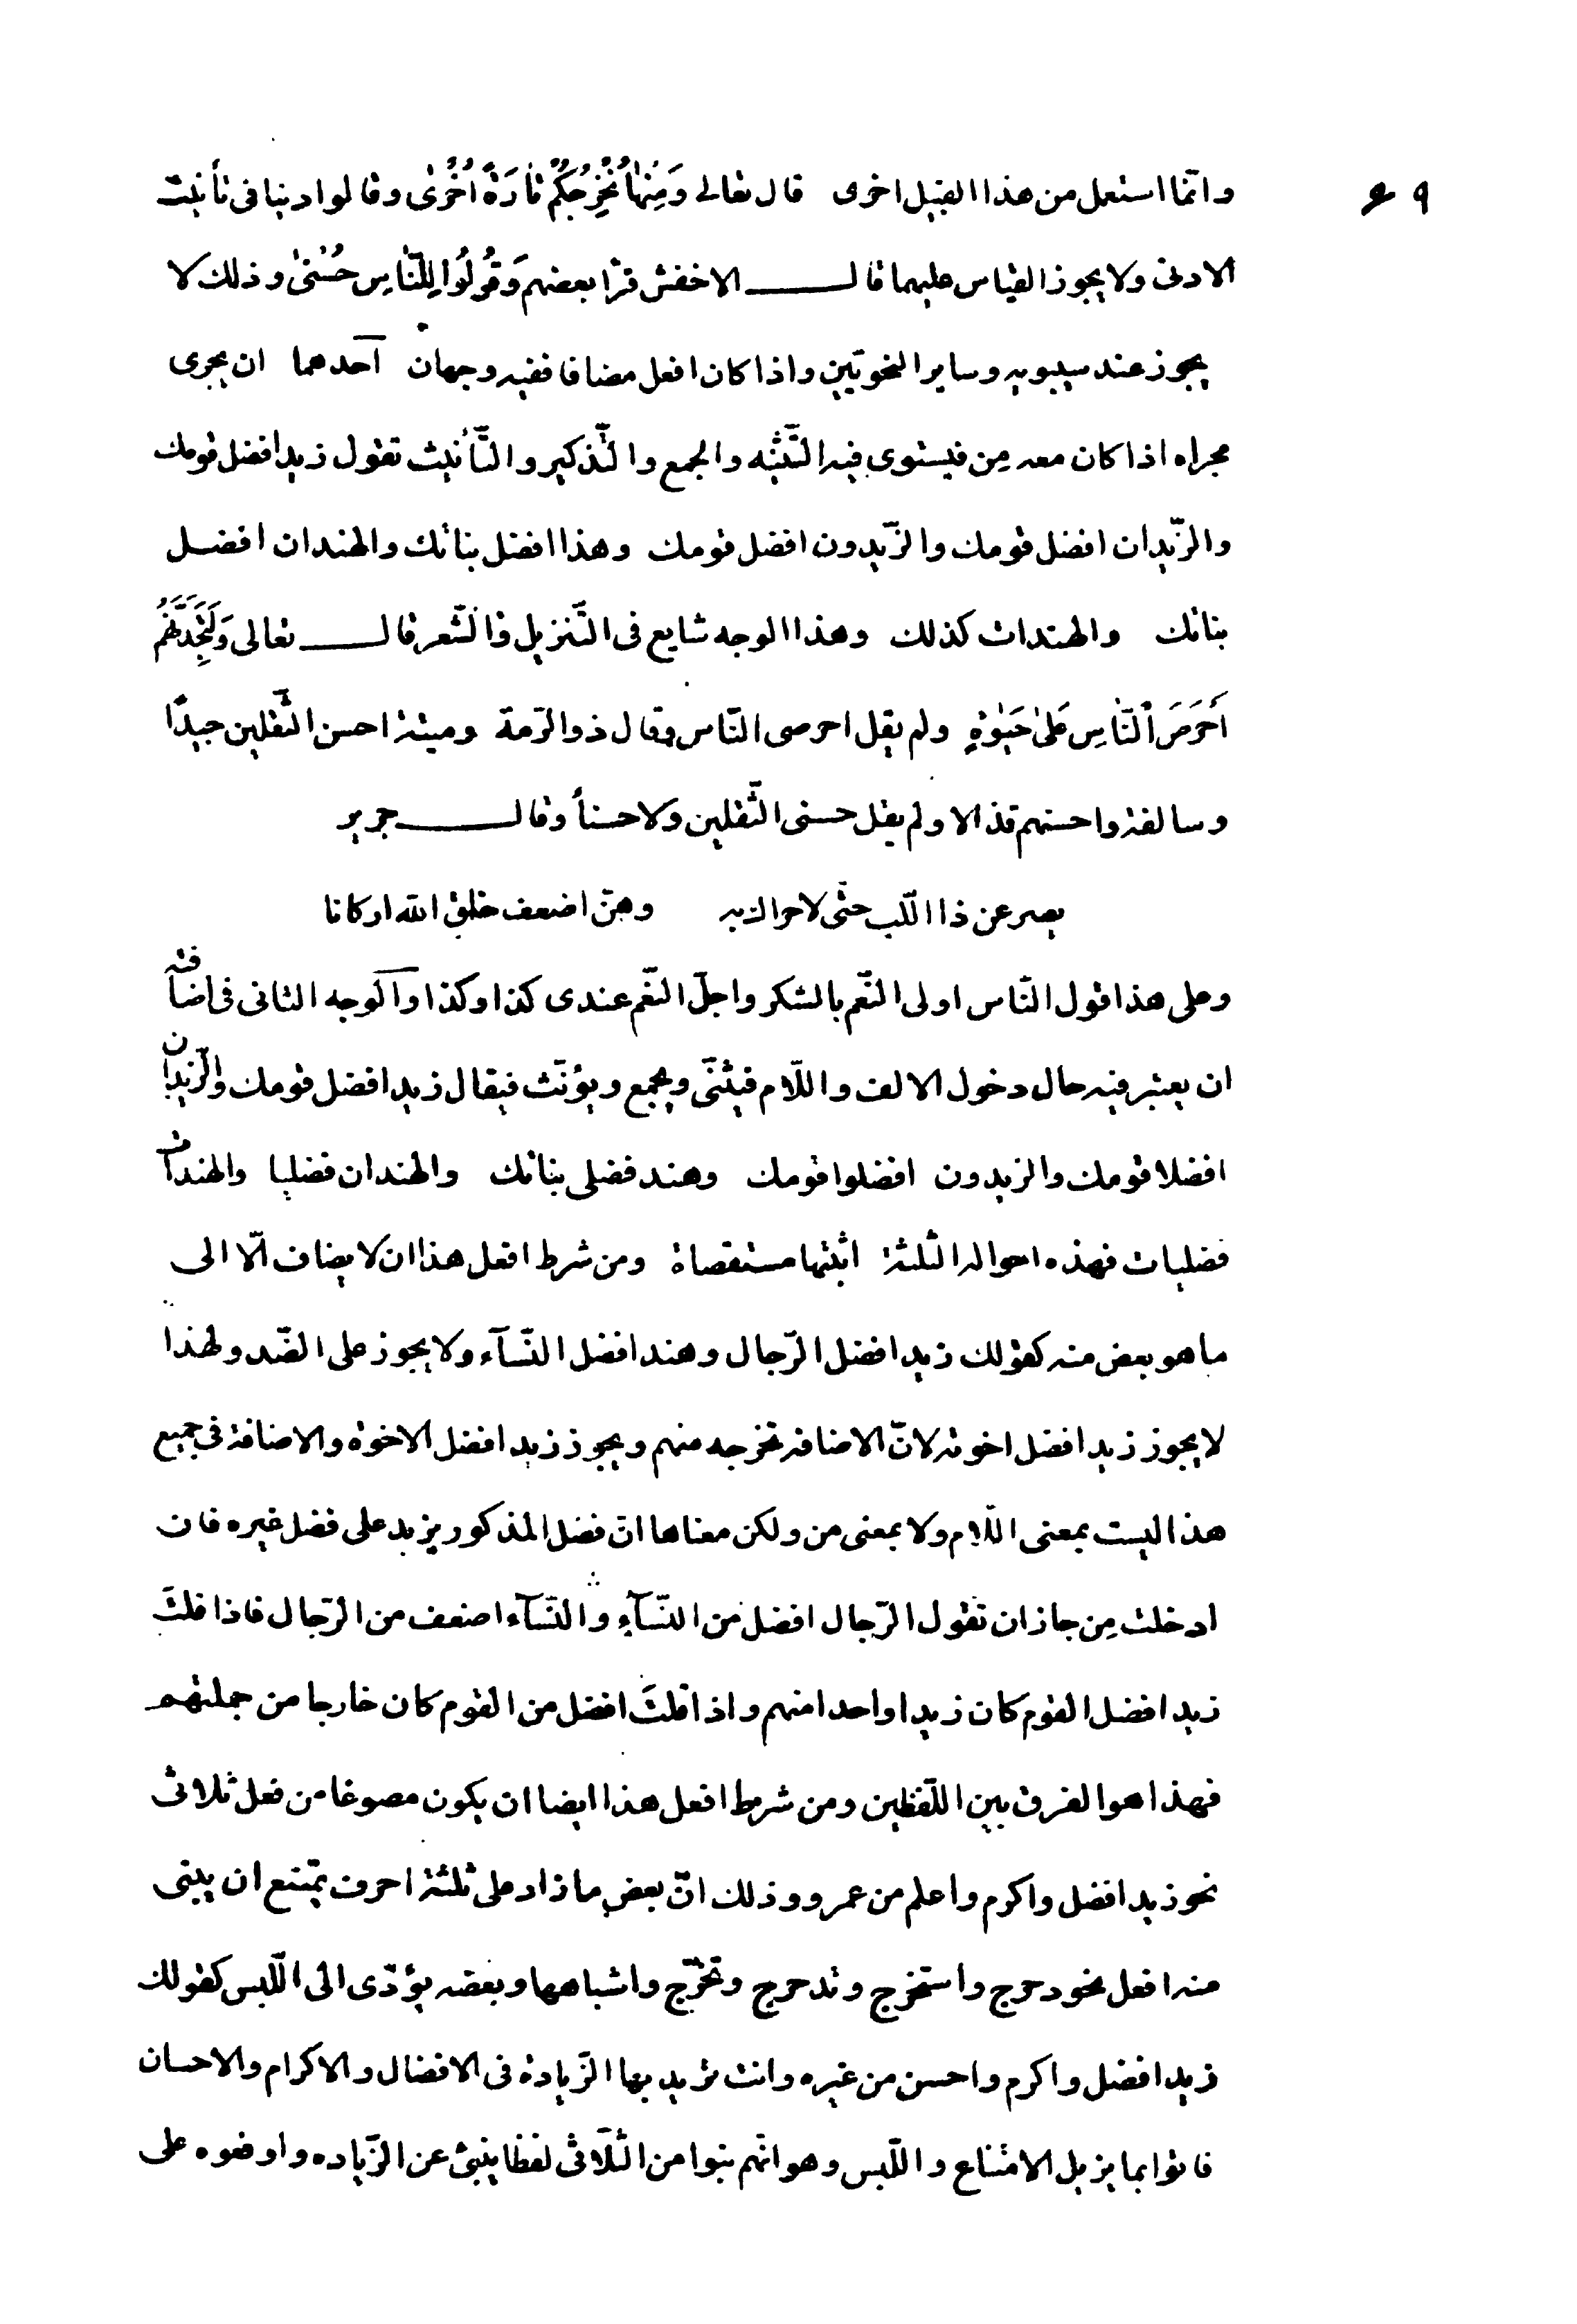 ٤٩
وانّما استعمل من هذا القبيل اخرى قال تعالى وَمِنْهَا نُخْرِجُكُمْ تَارَةً أُخْرَى وقالوا دنيا فى تأنيث
الادنى ولا يجوز القياس عليهما قال الاخفش قرأ بعضهم وَقُولُوا لِلنَّاسِ حُسْنىٰ وذلك لا
يجوز عند سيبويه وساير النحويّين واذا كان افعل مضافا ففيه وجهان احدهما ان يجرى
مجراه اذا كان معه مِن فيستوى فيه التّثنيه والجمع والتّذكير والتّأنيث تقول زيد افضل قومك
والزّيدان افضل قومك والزّيدون افضل قومك وهذا افضل بناتك والهندان افضل
بناتك والهندات كذلك وهذا الوجه شايع فى التّنزيل والشّعر قال تعالى وَلَتَجِدَنَّهُمْ
أَحْرَصَ النَّاسِ عَلىٰ حَيٰوةٍ ولم يقل احرصى النّاس وقال ذو الرّمة وميّة احسن الثّقلين جيدًا
وسالفة واحسنهم قذالا ولم يقل حسنى الثّقلين ولا حسنأ وقال جرير
يصرعن ذا اللّب حتّى لا حراك به وهنّ اضعف خلق الله اركانا
وعلى هذا قول النّاس اولى النّعم بالشكر واجلّ النّعم عندى كذا وكذا والوجه الثانى فى اضافته
ان يعتبر فيه حال دخول الالف واللّام فيثنّى ويجمع ويؤنّث فيقال زيد افضل قومك والزّيدان
افضلا قومك والزيدون افضلوا قومك وهند فضلى بناتك والهندان فضليا والهندات
فضليات فهذه احواله الثلثة اثبتها مستقصاة ومن شرط افعل هذا ان لا يضاف الّا الى
ما هو بعض منه كقولك زيد افضل الرّجال وهند افضل النّسآء ولا يجوز على الضّد ولهذا
لا يجوز زيد افضل اخوته لانّ الاضافه تخرجه منهم ويجوز زيد افضل الاخوة والاضافة فى جميع
هذا ليست بمعنى اللّام ولا بمعنى من ولكن معناها انّ فضل المذكور يزيد على فضل غيره فان
ادخلت مِن جاز ان تقول الرّجال افضل من النّسآءِ والنّسآء اضعف من الرّجال فاذا قلتَ
زيد افضل القوم كان زيدا واحدا منهم واذا قلتَ افضل من القوم كان خارجا من جملتهم
فهذا هو الفرق بين اللّفظين ومن شرط افعل هذا ايضا ان يكون مصوغا من فعل ثلاثى
نحو زيد افضل واكرم واعلم من عمرو وذلك انّ بعض ما زاد على ثلثة احرف يمتنع ان يبنى
منه افعل نحو دحرج واستخرج وتدحرج وتخرّج واشباهها وبعضه يؤدّى الى اللّبس كقولك
زيد افضل واكرم واحسن من غيره وانت تريد بها الزّيادة فى الافضال والاكرام والاحسان
فاتوا بما يزيل الامتناع واللّبس وهو انّهم بنوا من الثّلاثى لفظا ينبئ عن الزّياده واوقعوه على